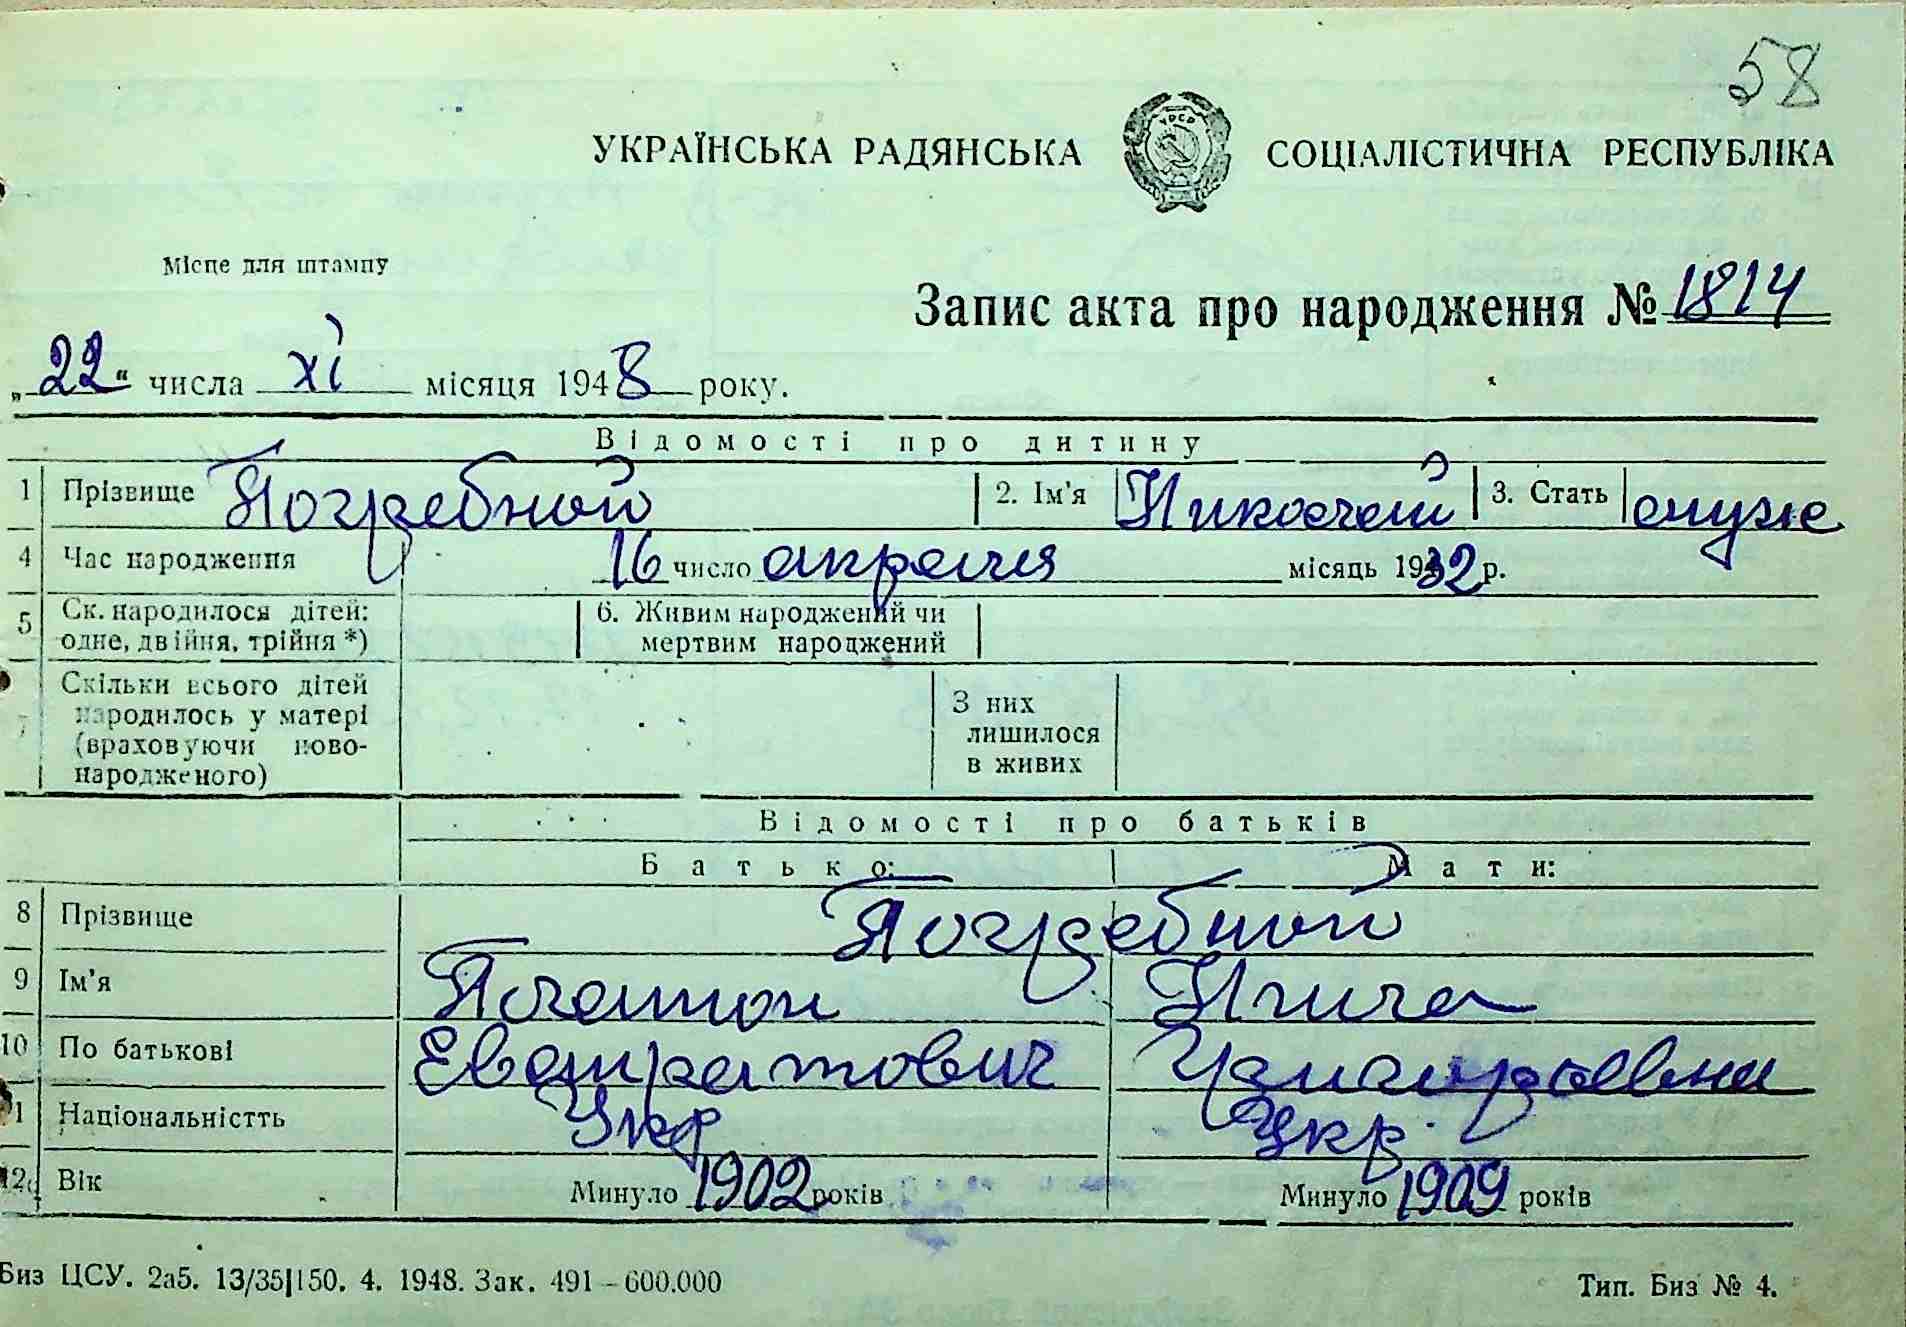 58
УКРАЇНСЬКА РАДЯНСЬКА СОЦІАЛІСТИЧНА РЕСПУБЛІКА
УРСР
Місце для штампу
Запис акта про народження № 1814
„22“ числа XI місяця 1948 року.
Відомості про дитину
1 Прізвище Погребной 2. Ім'я Николай 3. Стать муж
4 Час народження 16 число апреля місяць 1932 р.
5 Ск. народилося дітей: 6. Живим народжений чи
одне, двійня, трійня *) мертвим народжений
7 Скільки всього дітей З них
народилось у матері лишилося
(враховуючи ново- в живих
народженого)
Відомості про батьків
Батько: Мати:
8 Прізвище Погребной
9 Ім'я Платон
10 По батькові Евстратович
11 Національністть Укр Укр.
12 Вік Минуло 1902 років Минуло 1909 років
Биз ЦСУ. 2а5. 13/35|150. 4. 1948. Зак. 491 – 600.000 Тип. Биз № 4.